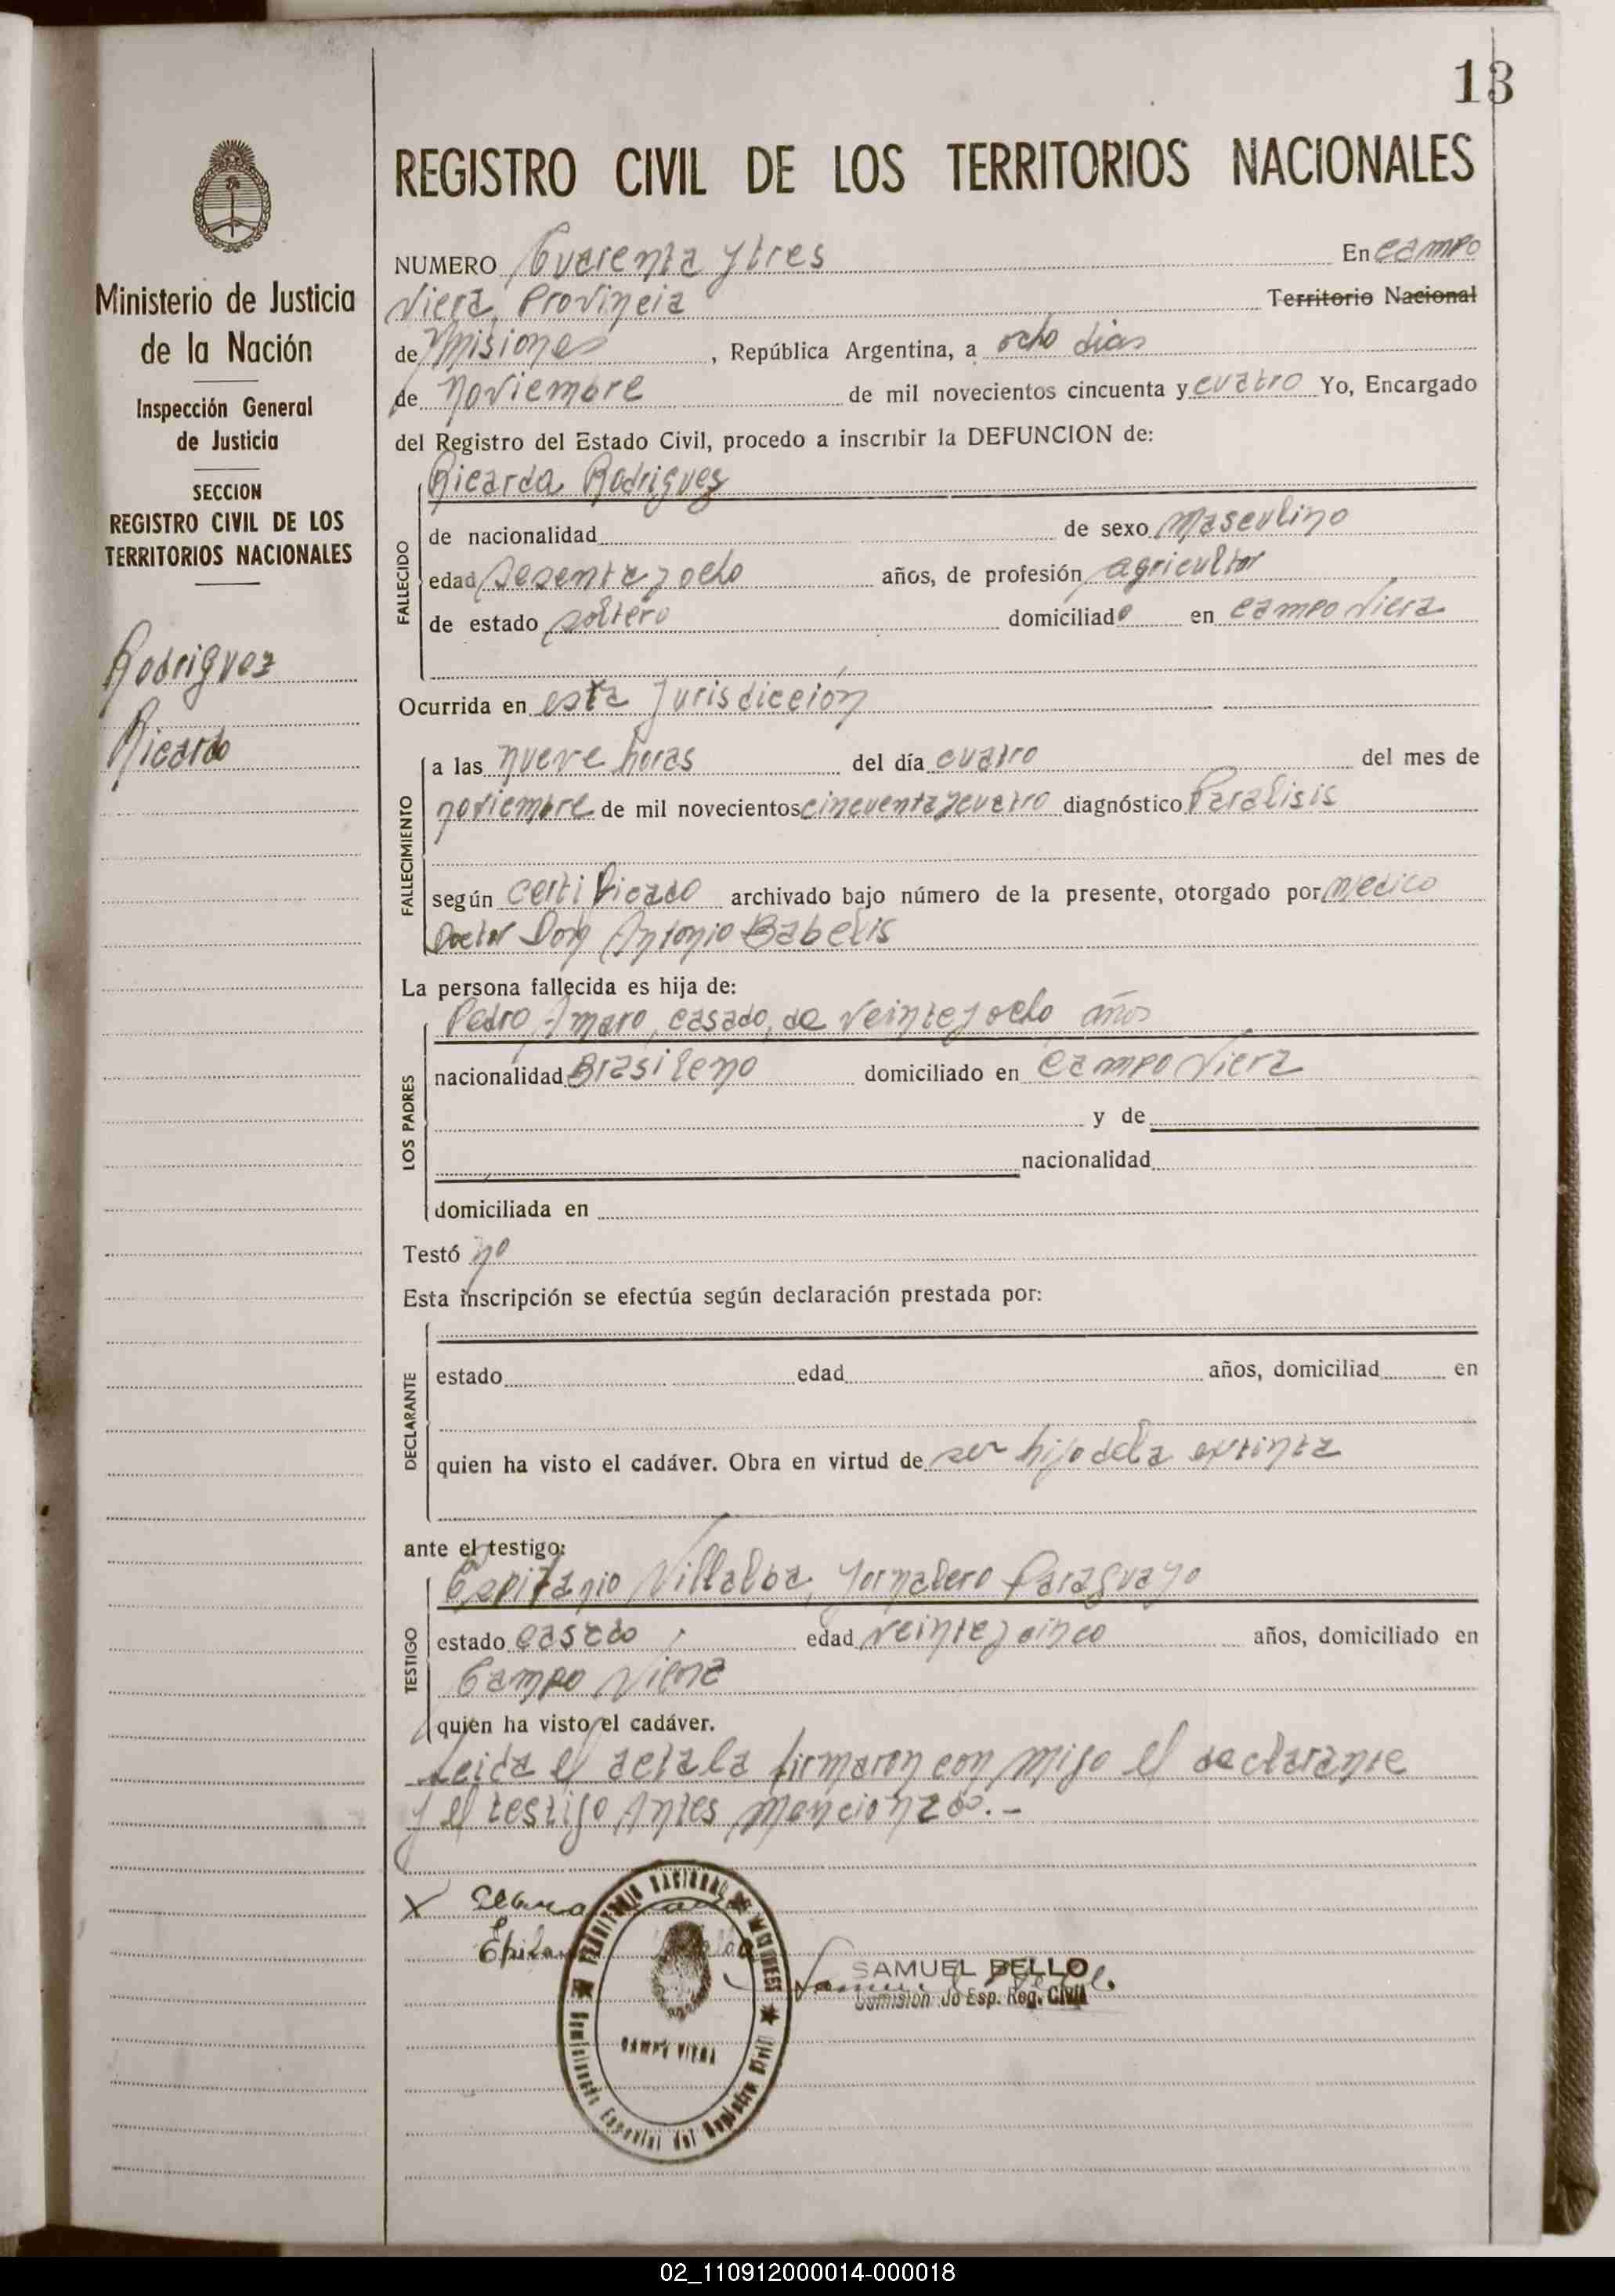 13
REGISTRO CIVIL DE LOS TERRITORIOS NACIONALES
Ministerio de Justicia
de la Nación
Inspección General
de Justicia
SECCION
REGISTRO CIVIL DE LOS
TERRITORIOS NACIONALES
Rodriguez
Ricardo
NUMERO Cuarenta y tres En campo
Viera, Provincia Territorio Nacional
de Misiones, República Argentina, a ocho dias
de noviembre de mil novecientos cincuenta y cuatro Yo, Encargado
del Registro del Estado Civil, procedo a inscribir la DEFUNCION de:
Ricarda Rodriguez
FALLECIDO
de nacionalidad de sexo Masculino
edad Sesenta y ocho años, de profesión agricultor
de estado soltero domiciliado en campo Viera
Ocurrida en esta Jurisdicción
FALLECIMIENTO
a las nueve horas del día cuatro del mes de
noviembre de mil novecientos cincuenta y cuatro diagnóstico Paralisis
según certificado archivado bajo número de la presente, otorgado por Medico
Doctor Don Antonio Babelis
La persona fallecida es hija de:
LOS PADRES
Pedro Amaro, casado, de veinte y ocho años
nacionalidad Brasileno domiciliado en Campo Viera
y de
nacionalidad
domiciliada en
Testó no
Esta inscripción se efectúa según declaración prestada por:
DECLARANTE
estado edad años, domiciliad en
quien ha visto el cadáver. Obra en virtud de ser hijo de la extinta
ante el testigo:
TESTIGO
Epitanio Villalba, Jornalero Paraguayo
estado casado, edad veinte y cinco años, domiciliado en
Campo Viera
quien ha visto el cadáver.
Leida el acta la firmaron con migo el declarante
y el testigo Antes mencionado.-
X
TERRITORIO NACIONAL DE MISIONES
CAMPO VIERA
Comisionado Especial del Registro Civil
SAMUEL BELLO
Comisionado Esp. Reg. Civil
02_110912000014-000018